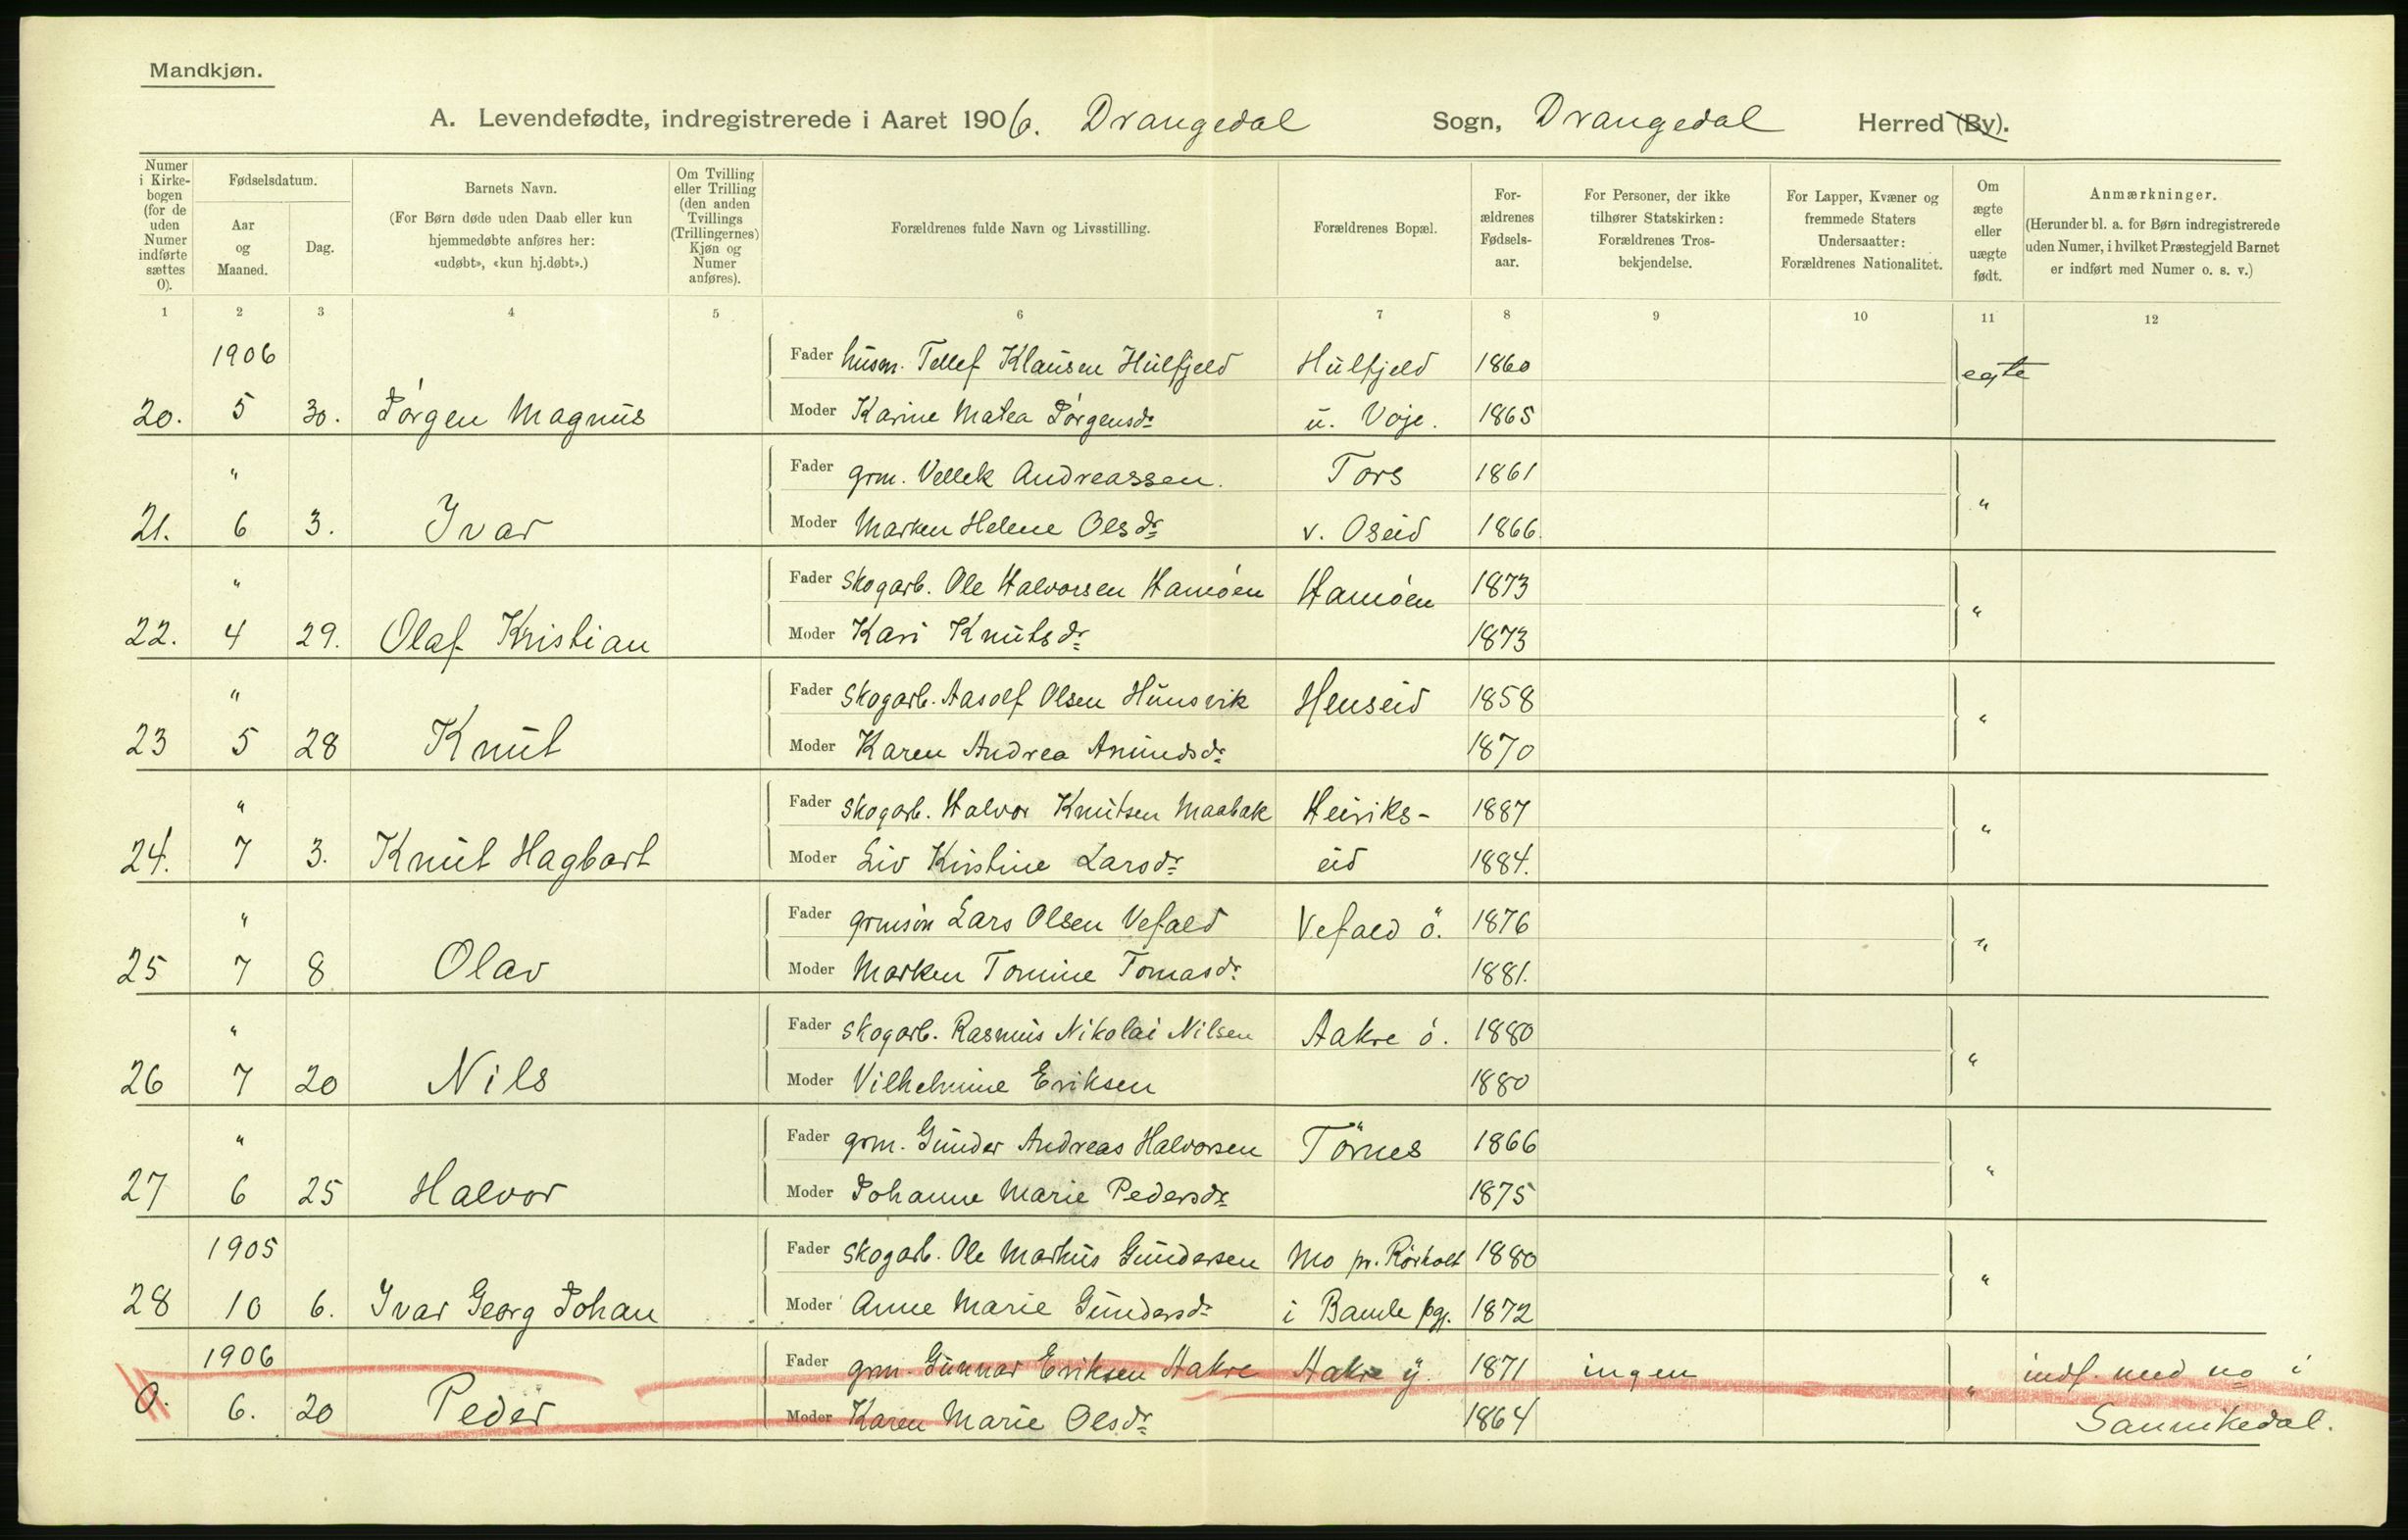 Mandkjøn.
A. Levendefødte, indregistrerede i Aaret 1906. Drangedal Sogn, Drangedal Herred (By).
Numer i Kirkebogen (for de uden Numer indførte sættes 0).
Fødselsdatum.
Aar og Maaned.
Dag.
Barnets Navn.
(For Børn døde uden Daab eller kun hjemmedøbte anføres her: «udøbt», «kun hj.døbt».)
Om Tvilling eller Trilling (den anden Tvillings (Trillingernes) Kjøn og Numer anføres).
Forældrenes fulde Navn og Livsstilling.
Forældrenes Bopæl.
Forældrenes Fødselsaar.
For Personer, der ikke tilhører Statskirken: Forældrenes Trosbekjendelse.
For Lapper, Kvæner og fremmede Staters Undersaatter: Forældrenes Nationalitet.
Om ægte eller uægte født.
Anmærkninger.
(Herunder bl. a. for Børn indregistrerede uden Numer, i hvilket Præstegjeld Barnet er indført med Numer o. s. v.)
1 2 3 4 5 6 7 8 9 10 11 12
1906 Fader husm. Tellef Klausen Hulfjeld Hulfjeld 1860 egte
20. 5 30. Jørgen Magnus Moder Karine Matea Jørgensdr u. Voje. 1865
" Fader grm. Vellek Andreassen. Tors 1861 "
21. 6 3. Ivar Moder Marken Helene Olsdr v. Oseid 1866.
" Fader Skogarb. Ole Halvorsen Hamøen Hamøen 1873 "
22. 4 29. Olaf Kristian Moder Kari Knutsdr 1873
" Fader Skogarb. Aasolf Olsen Hunsvik Henseid 1858 "
23 5 28 Knut Moder Karen Andrea Amundsdr 1870
" Fader Skogarb. Halvor Knutsen Maabak Heiriks- 1887 "
24. 7 3. Knut Hagbart Moder Liv Kirstine Larsdr eid 1884.
" Fader grmsøn Lars Olsen Vefald Vefald ö. 1876 "
25 7 8 Olav Moder Marken Tomine Tomasdr 1881.
" Fader Skogarb. Rasmus Nikolai Nilsen Aakre ö. 1880 "
26 7 20 Nils Moder Vilhelmine Eriksen 1880
" Fader grm. Gunder Andreas Halvorsen Törnes 1866 "
27 6 25 Halvor Moder Johanne Marie Pedersdr 1875
1905 Fader Skogarb. Ole Markus Gundersen Mo pr. Rørholt 1880 "
28 10 6. Ivar Georg Johan Moder Anne Marie Gundersdr i Bamle pgj. 1872
1906 Fader grm. Gunnar Eriksen Aakre Aakre y. 1871 ingen " indf. med no i
0. 6. 20 Peder Moder Karen Marie Olsdr 1864 Sannikedal.